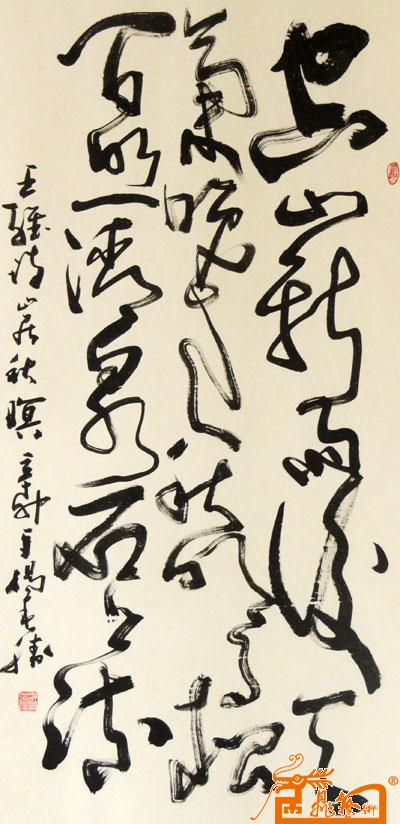 空山新雨後天
氣晚来秋明月松
间照清泉石上流
王维诗山居秋暝辛卯年楊